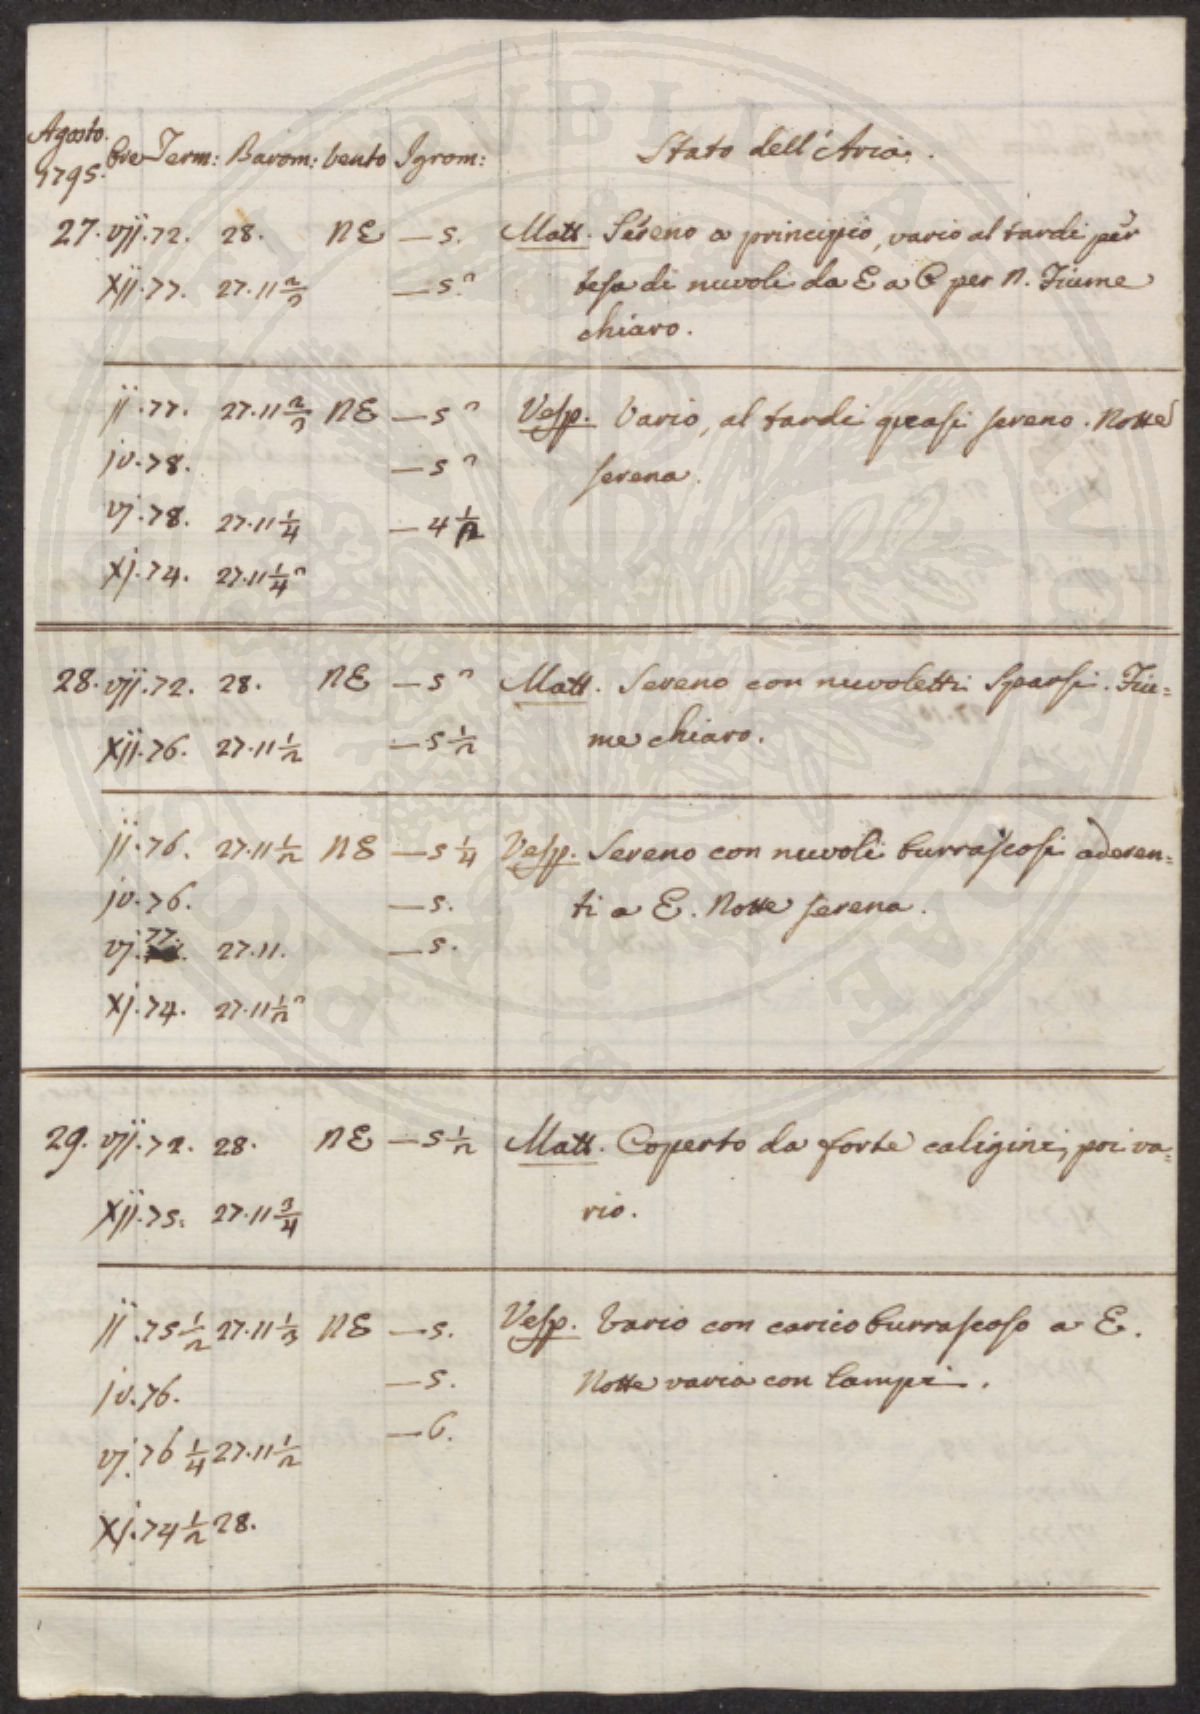 Agosto. 1795. Ore Term: Barom: Vento Igrom: Stato dell'Aria.
27. vij. 72. 28. NE — 5. Matt. Sereno a principio, vario al tardi per
xij. 77. 27. 11 2/3 — 5. tesa di nuvoli da E a O per N. Fiume
chiaro.
ij. 77. 27. 11 2/3 NE — 5 Vesp. Vario, al tardi quasi sereno. Notte
iv. 78. — 5 serena.
vj. 78. 27. 11 1/4 — 4 1/2
xj. 74. 27. 11 1/4
28. vij. 72. 28. NE — 5 Matt. Sereno con nuvoletti sparsi. Fiu=
xij. 76. 27. 11 1/2 — 5 1/2 me chiaro.
ij. 76. 27. 11 1/2 NE — 5 1/4 Vesp. Sereno con nuvoli burrascosi aderen=
iv. 76. — 5. ti a E. Notte serena.
vj. 77. 27. 11. — 5.
xj. 74. 27. 11 1/2
29. vij. 72. 28. NE — 5 1/2 Matt. Coperto da forte caligine, poi va=
xij. 75. 27. 11 3/4 rio.
ij. 75 1/2 27. 11 1/3 NE — 5. Vesp. Vario con carico burrascoso a E.
iv. 76. — 5. Notte varia con lampi.
vj. 76 1/4 27. 11 1/2 — 6.
xj. 74 1/2 28.